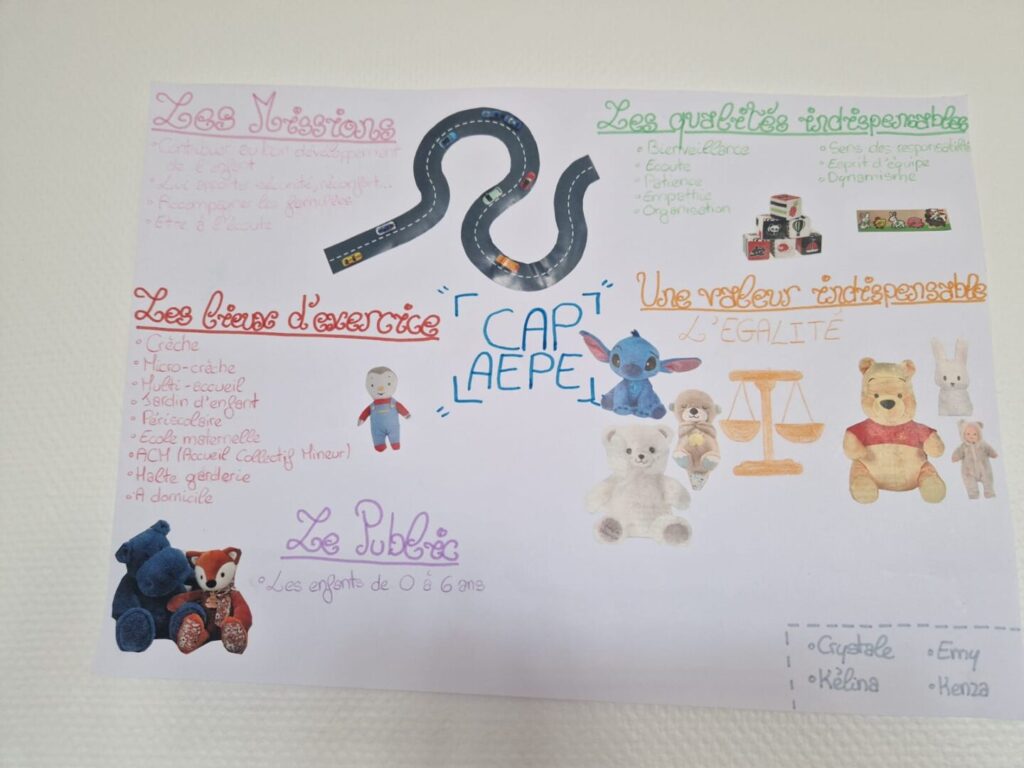 Les Missions
• Contribuer au bon développement
de l'enfant
• Lui apporter sécurité, réconfort...
• Accompagner les familles
• Etre à l'écoute
Les qualités indispensables
• Bienveillance
• Ecoute
• Patience
• Empathie
• Organisation
• Sens des responsabilités
• Esprit d'équipe
• Dynamisme
Les lieux d'exercice
• Crèche
• Micro-crèche
• Multi-accueil
• Jardin d'enfant
• Périscolaire
• Ecole maternelle
• ACM (Accueil Collectif Mineur)
• Halte garderie
• A domicile
CAP
AEPE
Une valeur indispensable
L'EGALITÉ
Le Public
• Les enfants de 0 à 6 ans
• Crystale
• Kélina
• Emy
• Kenza